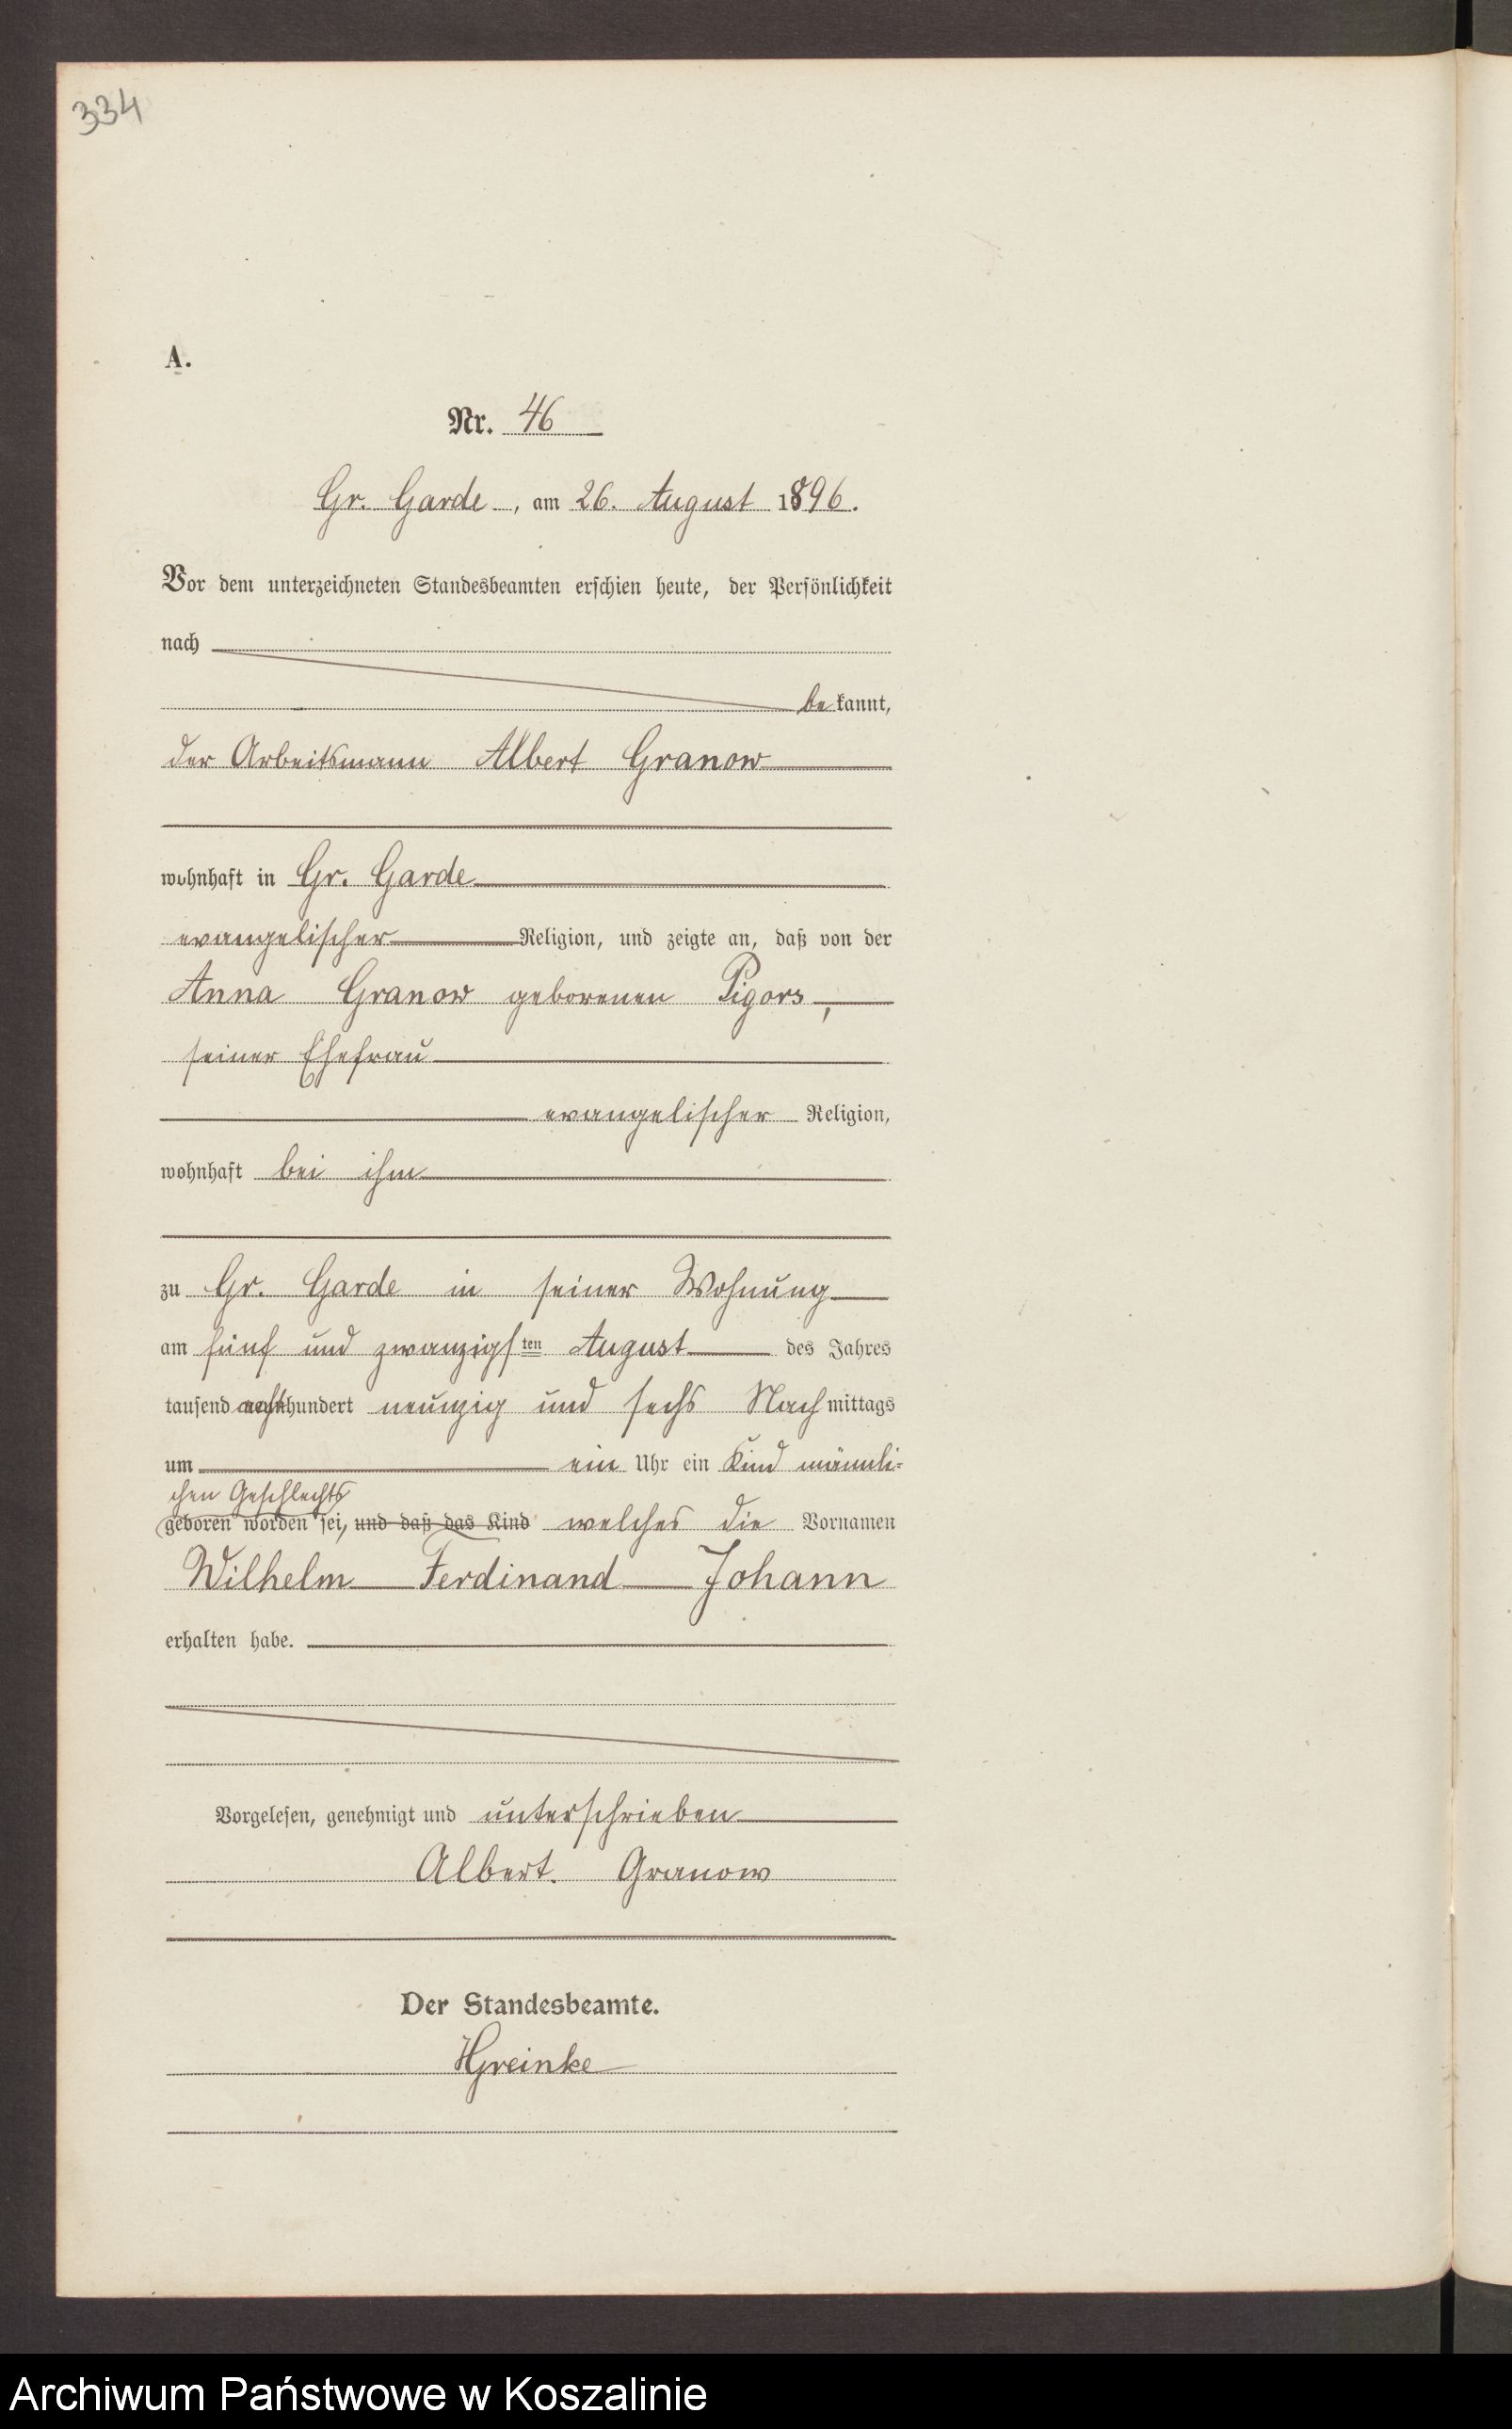 334
A.
Nr. 46
Gr. Garde, am 26. August 1896.
Vor dem unterzeichneten Standesbeamten erschien heute, der Persönlichkeit
nach
bekannt,
der Arbeitsmann Albert Granow
wohnhaft in Gr. Garde
evangelischer Religion, und zeigte an, daß von der
Anna Granow geborenen Pigors,
seiner Ehefrau
evangelischer Religion,
wohnhaft bei ihm
zu Gr. Garde in seiner Wohnung
am fünf und zwanzigsten August des Jahres
tausend achthundert neunzig und sechs Nachmittags
um ein Uhr ein Kind männli-
chen Geschlechts
geboren worden sei, und daß das Kind welches die Vornamen
Wilhelm Ferdinand Johann
erhalten habe.
Vorgelesen, genehmigt und unterschrieben
Albert. Granow
Der Standesbeamte.
HGreinke
Archiwum Państwowe w Koszalinie